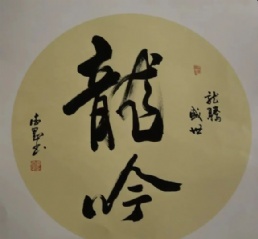 龍騰
盛世
龍吟